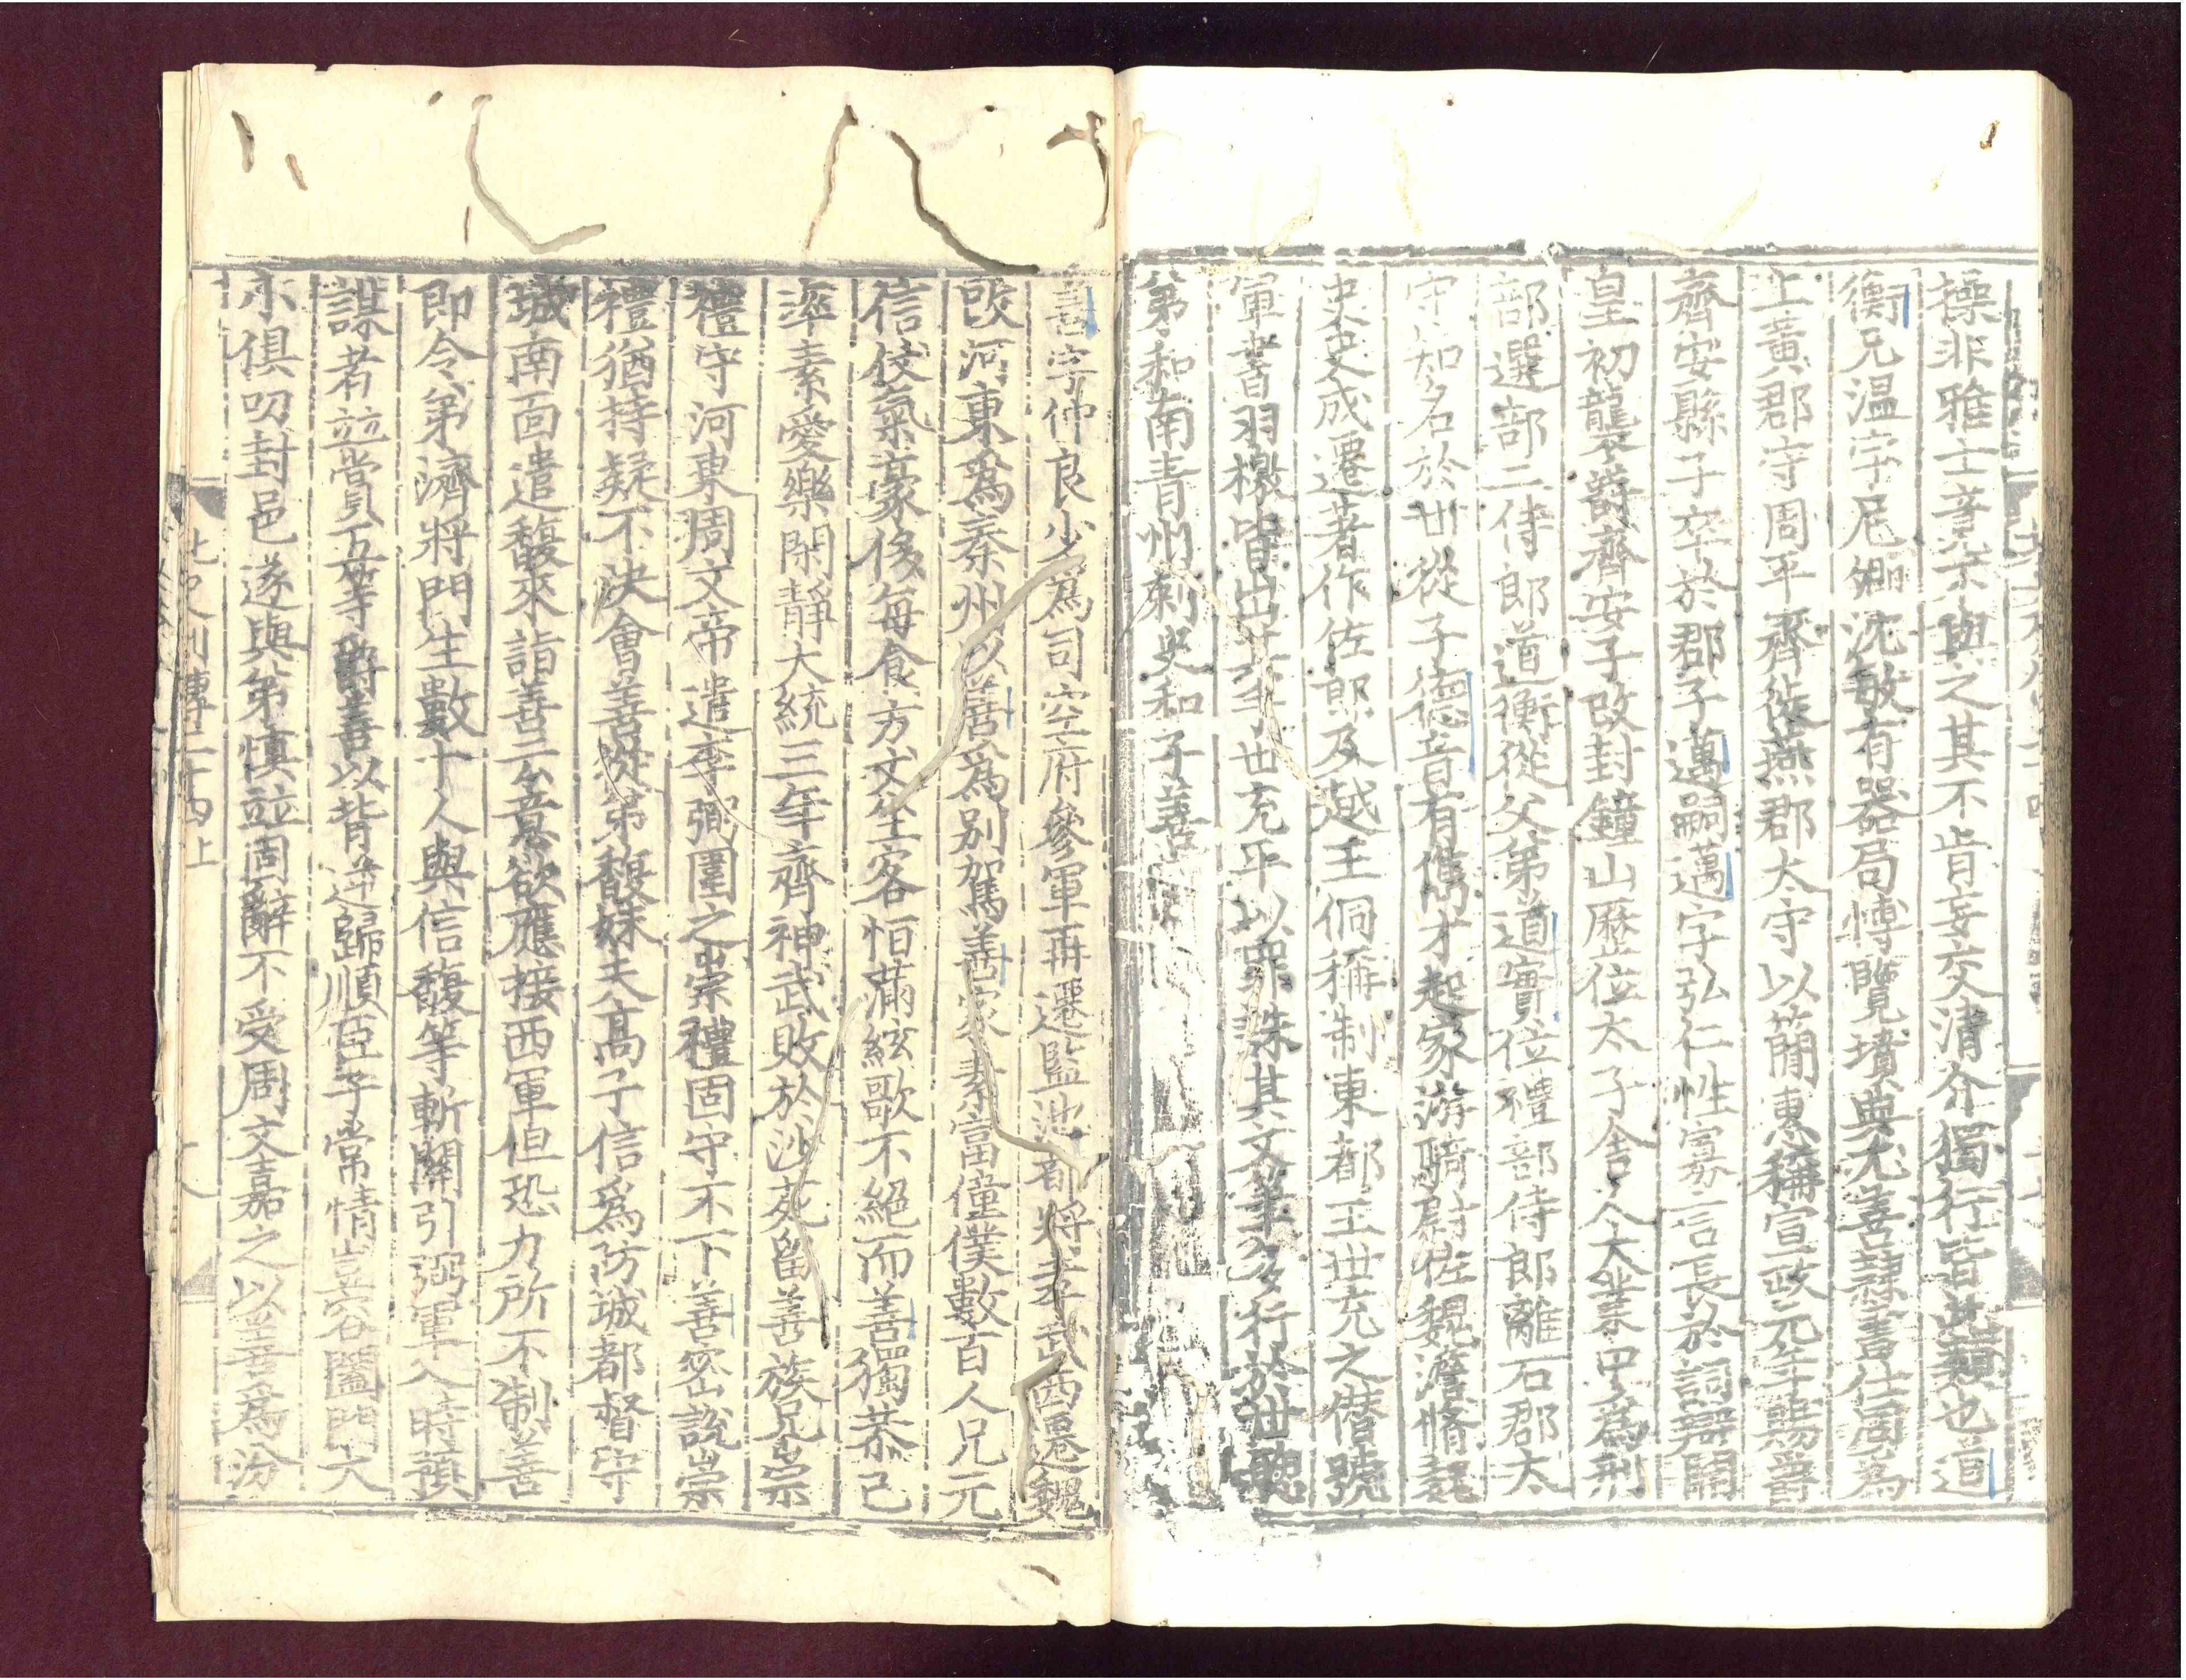 操非雅士竟不與之其不肯妄交清介獨行皆此類也道
衡兄温字尼卿沈敏有器局博覽墳典尤善隷書仕周爲
上黄郡守周平齊徙燕郡太守以簡惠稱宣政元年賜爵
齊安縣子卒於郡子邁嗣邁字弘仁性寡言長於詞辯開
皇初襲爵齊安子改封鐘山歷位太子舍人大業中爲刑
部選部二侍郎道衡從父弟道實位禮部侍郎離石郡太
守知名於世從子德音有儁才起家游騎尉佐魏澹脩魏
史史成遷著作佐郎及越王侗稱制東都王世充之僭號
軍書羽檄皆出其手世充平以罪誅其文筆多行於世聰
弟和南青州刺史和子善
善字仲良少爲司空府參軍再遷監池都將孝武西遷魏
改河東爲秦州以善爲别駕善家素富僮僕數百人兄元
信仗氣豪侈每食方丈坐客恒滿絃歌不絕而善獨恭己
率素愛樂閑靜大統三年齊神武敗於沙苑留善族兄崇
禮守河東周文帝遣李弼圍之崇禮固守不下善密說崇
禮猶持疑不决會善從弟馥妹夫高子信爲防城都督守
城南面遣馥來詣善云意欲應接西軍但恐力所不制善
即令弟濟將門生數十人與信馥等斬關引弼軍入時預
謀者並賞五等爵善以背逆歸順臣子常情豈容闔門大
小俱叨封邑遂與弟慎並固辭不受周文嘉之以善爲汾
北史列傳二十四上
十八